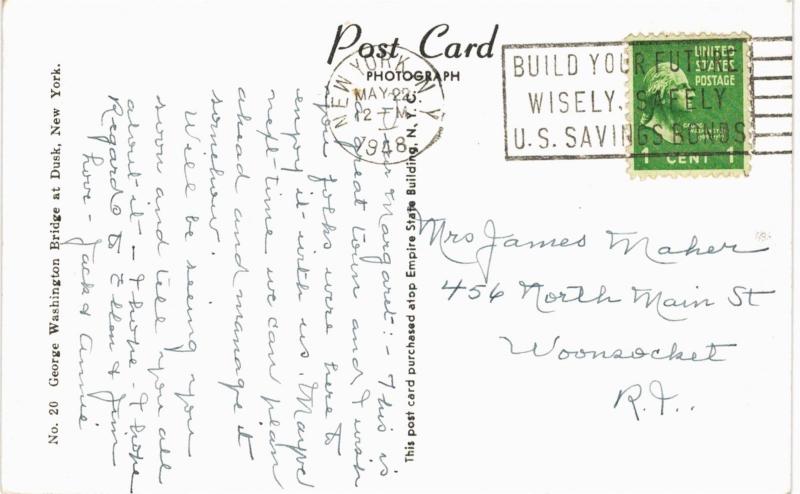 Post Card
PHOTOGRAPH
NEW YORK, N.Y.
MAY 22
12 - M
1948
BUILD YOUR FUTURE
WISELY, SAFELY
U.S. SAVINGS BONDS
UNITED
STATES
POSTAGE
1 CENT 1
No. 20 George Washington Bridge at Dusk, New York.
This post card purchased atop Empire State Building, N.Y.C.
Dear Margaret: - This is
a great town and I wish
you folks were here to
enjoy it with us. Maybe
next time we can plan
ahead and manage it
somehow.
Will be seeing you
soon and tell you all
about it - I hope - I hope
Regards to Ellen & Jim
Love - Jack & Annie
Mrs James Maher
456 North Main St
Woonsocket
R.I.